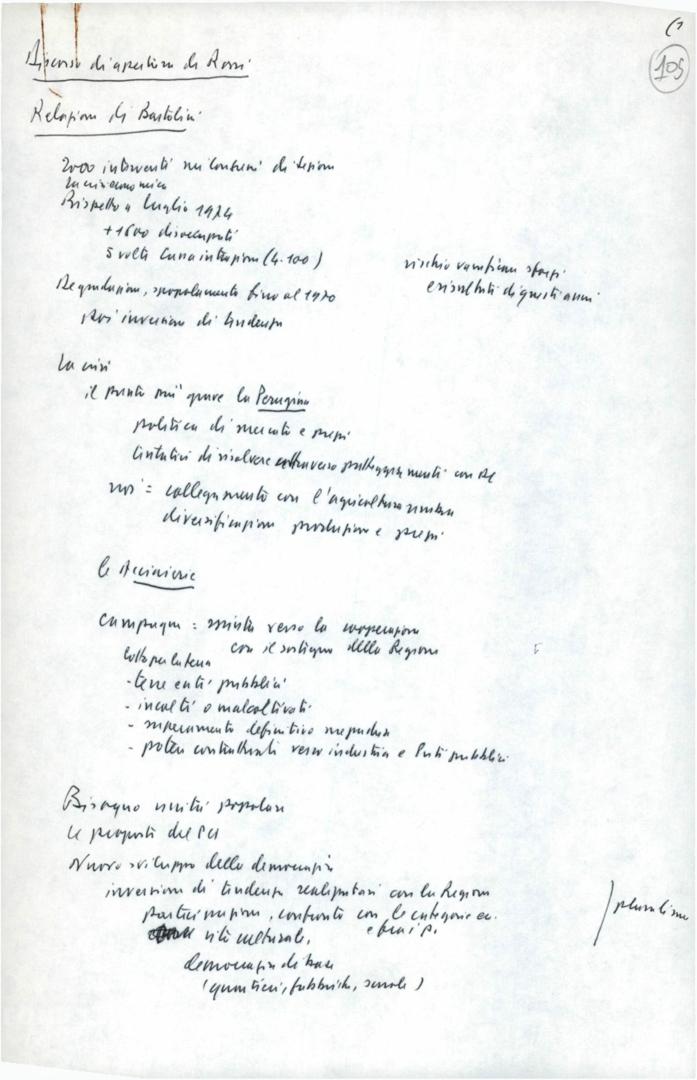 105
Discorso di apertura di Rossi
Relazione di Bartolini
2000 interventi nei Comuni di
la crisi economica
Rispetto a luglio 1974
+1600 disoccupati
5 volte Cassa integrazione (4.100)
rischio vanificare sforzi
e risultati di questi anni
Degradazione, spopolamento fino al 1970
poi inversione di tendenza
La crisi
il punto più grave la Perugina
politica di mercato e prezzi
tentativi di risolvere attraverso con
noi = collegamento con l'agricoltura umbra
diversificazione produzione e prezzi
le Acciaierie
campagna = spinta verso la cooperazione
con il sostegno della Regione
lotta per la terra
- terre enti pubblici
- incolte o malcoltivate
- superamento definitivo mezzadria
- potere contrattuale verso industria e Enti pubblici
Bisogno unità popolare
le proposte del PCI
Nuovo sviluppo della democrazia
inversione di tendenza realizzatasi con la Regione
partecipazione, confronto con le categorie ec.
e
vita culturale,
democrazia di base
(quartieri, fabbriche, scuole)
pluralismo